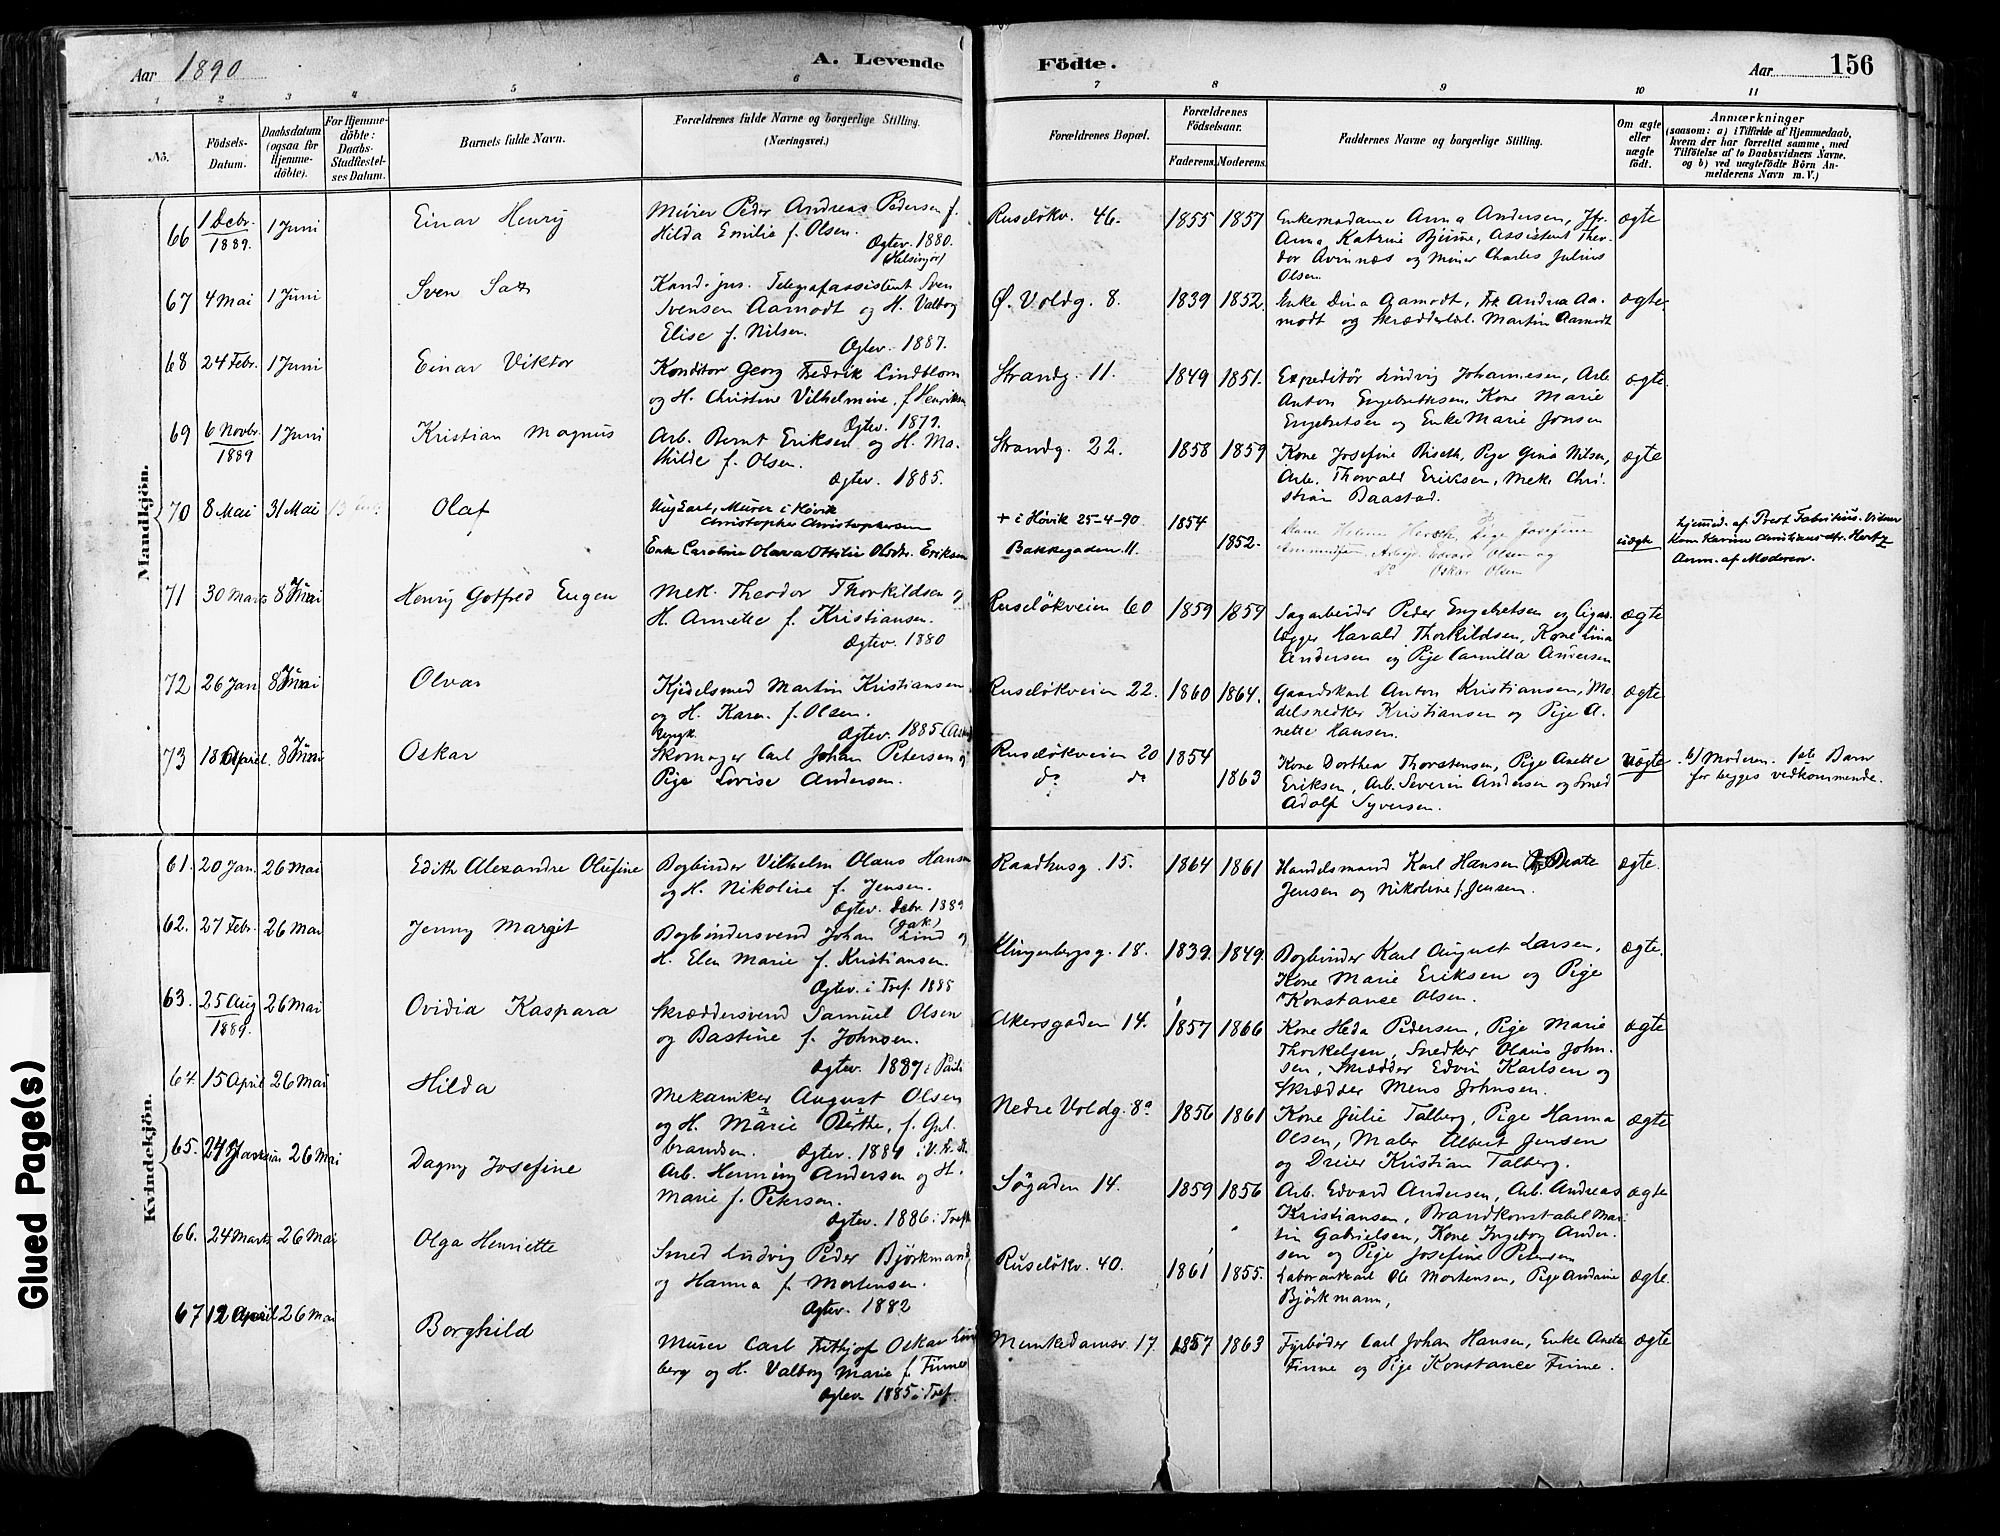 Aar 1890
A. Levende
Födte.
Aar
156
1 2 3 4 5 6 7 8 9 10 11
No.
Födsels-Datum.
Daabsdatum (ogsaa for Hjemme-döbte).
For Hjemme-döbte: Daabs-Stadfæstel-ses Datum.
Barnets fulde Navn.
Forældrenes fulde Navne og borgerlige Stilling. (Næringsvei.)
Forældrenes Bopæl.
Forældrenes Födselsaar.
Faderens. Moderens.
Faddernes Navne og borgerlige Stilling.
Om ægte eller uægte födt.
Anmærkninger
(saasom: a) i Tilfælde af Hjemmedaab,
hvem der har forrettet samme, med
Tilföielse af to Daabsvidners Navne.
og b) ved uægtefödte Börn An-
melderens Navn m. V.)
Mandkjön.
66 1 Debr. 1889. 1 Juni Einar Henry
Murer Peder Andreas Pedersen f.
Hilda Emilie f. Olsen.
Ægtev. 1880.
(Helsingör)
Ruselökv. 46. 1855 1857
Enkemadame Anna Andersen, Jfr.
Anna Katrine Bjune, Assistent Theo-
dor Avnnæs og Murer Charles Julius
Olsen
ægte
67 4 Mai 1 Juni Sven
Kand. jur. Telegrafassistent Sven
Svensen Aamodt og H. Valborg
Elise f. Nilsen.
Ægtev. 1887.
Ø. Voldg. 8. 1839 1852.
Enke Dina Aamodt, Frk Andrea Aa-
modt og Skrædderlærl. Martin Aamodt
ægte.
68 24 Febr. 1 Juni Einar Viktor
Konditor Georg Fredrik Lindblom
og H. Christine Vilhelmine, f. Henriksen
Ægtev. 1879.
Strandg. 11. 1849 1851.
Expeditör Ludvig Johannesen, Arb.
Anton Engebretsen, Kone Marie
Engebretsen og Enke Marie Jonsen
ægte.
69 6 Novbr. 1889 1 Juni Kristian Magnus
Arb. Bernt Eriksen og H. Ma-
thilde f. Olsen.
Ægtev. 1885.
Strandg. 22. 1858 1859
Kone Josefine Biseth, Pige Gina Nilsen,
Arb. Thorvald Eriksen, Mek. Chri-
stian Baastad.
ægte
70 8 Mai 31 Mai Olaf
Ungkarl, Murer i Hövik
Christopher Christophersen
Enke Caroline Olava Ottilie Olsdr. Eriksen
+ i Hövik 25-4-90
Bakkegaden 11.
1854 1852.
Josefine
Edvard Olsen og
Oskar Olsen
uægte
hjemmed. af Prest Fabritius. Vidner
Kone Karine Christiansdtr. Hertz
Anm. af Moderen.
71 30 Marts 8 Juni Henry Gotfred Eugen
Mek. Theodor Thorkildsen og
H. Annette f. Kristiansen.
Ægtev. 1880
Ruselökveien 60 1859 1859
Sagarbeider Peder Engebretsen og Cigar-
lægger Harald Thorkildsen, Kone Lina
Andersen og Pige Camilla Andersen
ægte
72 26 Jan 8 Juni Olvar
Kjedelsmed Martin Kristiansen
og H. Karen f. Olsen.
Ægtev. 1885
Ruselökveien 22. 1860 1864.
Gaardskarl Anton Kristiansen, Mo-
delsnedker Kristiansen og Pige A-
nette Hansen.
ægte
73 18 April 8 Juni Oskar
Ungk.
Skomager Carl Johan Petersen og
Pige Lovise Andersen.
Ruselökveien 20
do do
1854 1863
Kone Dorthea Thorstensen, Pige Anette
Eriksen, Arb. Severin Andersen og Smed
Adolf Syversen.
uægte
b/ Moderen. 1ste Barn
for begges vedkommende.
Kvindekjön.
61. 20 Jan. 26 Mai Edith Alexandre Olufine
Bogbinder Vilhelm Olaus Hansen
og H. Nikoline f. Jensen.
Ægtev. Debr. 1889
Raadhusg. 15. 1864 1861
Handelsmand Karl Hansen Beate
Jensen og Nikoline f. Jensen.
ægte.
62. 27 Febr. 26 Mai Jenny Margit
Bogbindersvend Johan Lind og
H. Elen Marie f. Kristiansen.
Ægtev. i Tref. 1885
Klingenbergsg. 18. 1839. 1849.
Bogbinder Karl August Larsen,
Kone Marie Eriksen og Pige
Konstance Olsen.
ægte.
63. 25 Aug 1889. 26 Mai Ovidia Kaspara
Skræddersvend Samuel Olsen
og Bastine f. Johnsen.
Ægtev. 1887 i
Akersgaden 14. 1857 1866
Kone Heda Pedersen, Pige Marie
Thorkelsen, Snedker Olaus John-
sen, Skrædder Edvin Karlsen og
Skrædder Mens Johnsen.
ægte
64. 15 April 26 Mai Hilda
Mekaniker August Olsen
og H. Marie Berthe, f. Gul-
brandsen. Ægtev. 1884
Nedre Voldg. 8a 1856 1861
Kone Julie Talberg, Pige Hanna
Olsen, Maler Albert Jensen
og Dreier Kristian Talberg.
ægte
65. 24 Januar 26 Mai Dagny Josefine
Arb. Henning Andersen og H.
Marie f. Petersen.
Ægtev. 1886 i Trefk
Søgaden 14. 1859 1856
Arb. Edvard Andersen, Arb. Andreas
Kristiansen, Brandkonstabel Mar-
tin Gabrielsen, Kone Ingeborg Ander-
sen og Pige Josefine Petersen
ægte
66. 24 Marts 26 Mai Olga Henriette
Smed Ludvig Peder Björkmann
og Hanna f. Mortensen.
Ægtev. 1882
Ruselökv. 40. 1861 1855.
Laborantkarl Ole Mortensen, Pige Andrine
Björkmann,
ægte.
67 12 April 26 Mai Borghild
Murer Carl Frithjof Oskar Lind-
berg og H. Valborg Marie f. Finne
Ægtev. 1885 i Tref.
Munkedamsv. 17. 1857 1863
Fyrböder Carl Johan Hansen, Enke Anette
Finne og Pige Konstance Finne.
ægte
Glued Page(s)